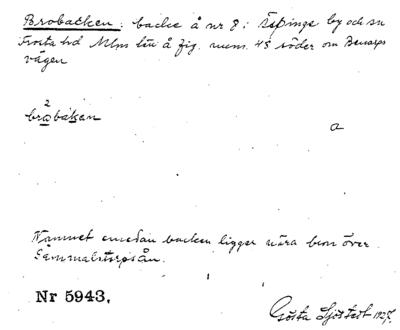 Brobacken: backe å nr 8 i Äspinge by och sn
Frosta hd Mlms län å fig. num. 45 söder om Benarps
vägen
2
brobakan
a
Namnet emedan backen ligger nära bron över
Gammalstorpsån.
Nr 5943.
Gösta Sjöstedt 1927.